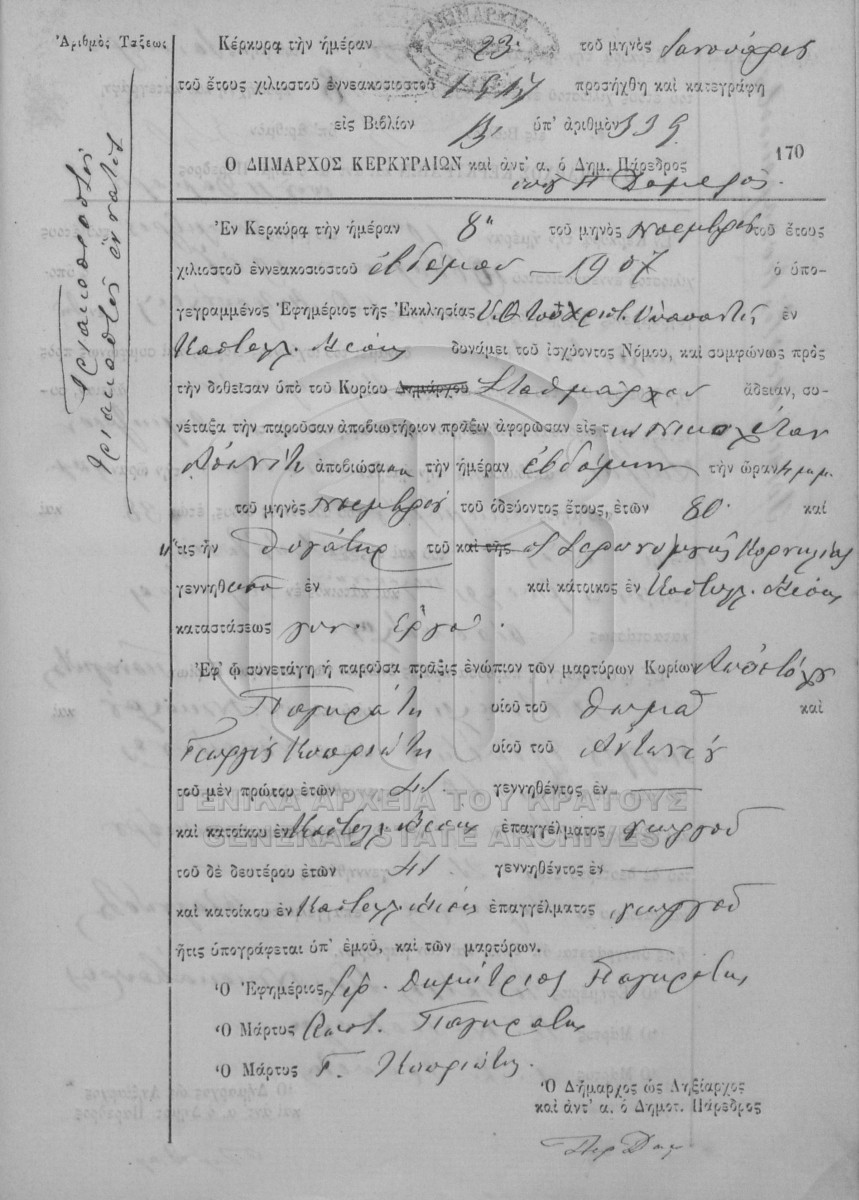 Ἀριθμὸς Τάξεως
τριακοστὸς
τριακοστὸς ἔννατος
ΔΗΜΑΡΧΙΑ
Κέρκυρα τὴν ἡμέραν 23 τοῦ μηνὸς Ἰανουάριος
τοῦ ἔτους χιλιοστοῦ ἐννεακοσιοστοῦ προσήχθη καὶ κατεγράφη
εἰς Βιβλίον ὑπ' ἀριθμὸν 339
170
Ο ΔΗΜΑΡΧΟΣ ΚΕΡΚΥΡΑΙΩΝ καὶ ἀντ' α. ὁ Δημ. Πάρεδρος
Ἐν Κερκύρᾳ τὴν ἡμέραν 8 τοῦ μηνὸς Νοεμβρίου τοῦ ἔτους
χιλιοστοῦ ἐννεακοσιοστοῦ ἑβδόμου — 1907 ὁ ὑπο-
γεγραμμένος Ἐφημέριος τῆς Ἐκκλησίας Ὑπαπαντῆς ἐν
Καστελλ. Μέσης δυνάμει τοῦ ἰσχύοντος Νόμου, καὶ συμφώνως πρὸς
τὴν δοθεῖσαν ὑπὸ τοῦ Κυρίου Δημάρχου Σταθμάρχου ἄδειαν, συ-
νέταξα τὴν παροῦσαν ἀποβιωτήριον πρᾶξιν ἀφορῶσαν εἰς τ
ἀποβιώσασαν τὴν ἡμέραν ἑβδόμην τὴν ὥραν
τοῦ μηνὸς Νοεμβρίου τοῦ ὁδεύοντος ἔτους, ἐτῶν 80 καὶ
τις ἦν θυγάτηρ τοῦ καὶ τῆς
γεννηθεῖσα ἐν — καὶ κάτοικος ἐν Καστελλ. Μέσης
καταστάσεως
Ἐφ' ᾧ συνετάγη ἡ παροῦσα πρᾶξις ἐνώπιον τῶν μαρτύρων Κυρίων Ἀποστόλου
Παγκράτη υἱοῦ τοῦ Θωμᾶ καὶ
Γεωργίου Κυπριώτη υἱοῦ τοῦ Ἀντωνίου
τοῦ μὲν πρώτου ἐτῶν γεννηθέντος ἐν —
ΓΕΝΙΚΑ ΑΡΧΕΙΑ ΤΟΥ ΚΡΑΤΟΥΣ
καὶ κατοίκου ἐν Καστελλ. Μέσης ἐπαγγέλματος γεωργοῦ
GENERAL STATE ARCHIVES
τοῦ δὲ δευτέρου ἐτῶν γεννηθέντος ἐν —
καὶ κατοίκου ἐν Καστελλ. Μέσης ἐπαγγέλματος γεωργοῦ
ἥτις ὑπογράφεται ὑπ' ἐμοῦ, καὶ τῶν μαρτύρων.
Ὁ Ἐφημέριος Ἱερ. Δημήτριος Παγκράτης
Ὁ Μάρτυς Ἀποστ. Παγκράτης
Ὁ Μάρτυς Γ. Κυπριώτης.
Ὁ Δήμαρχος ὡς Ληξίαρχος
καὶ ἀντ' α. ὁ Δημοτ. Πάρεδρος